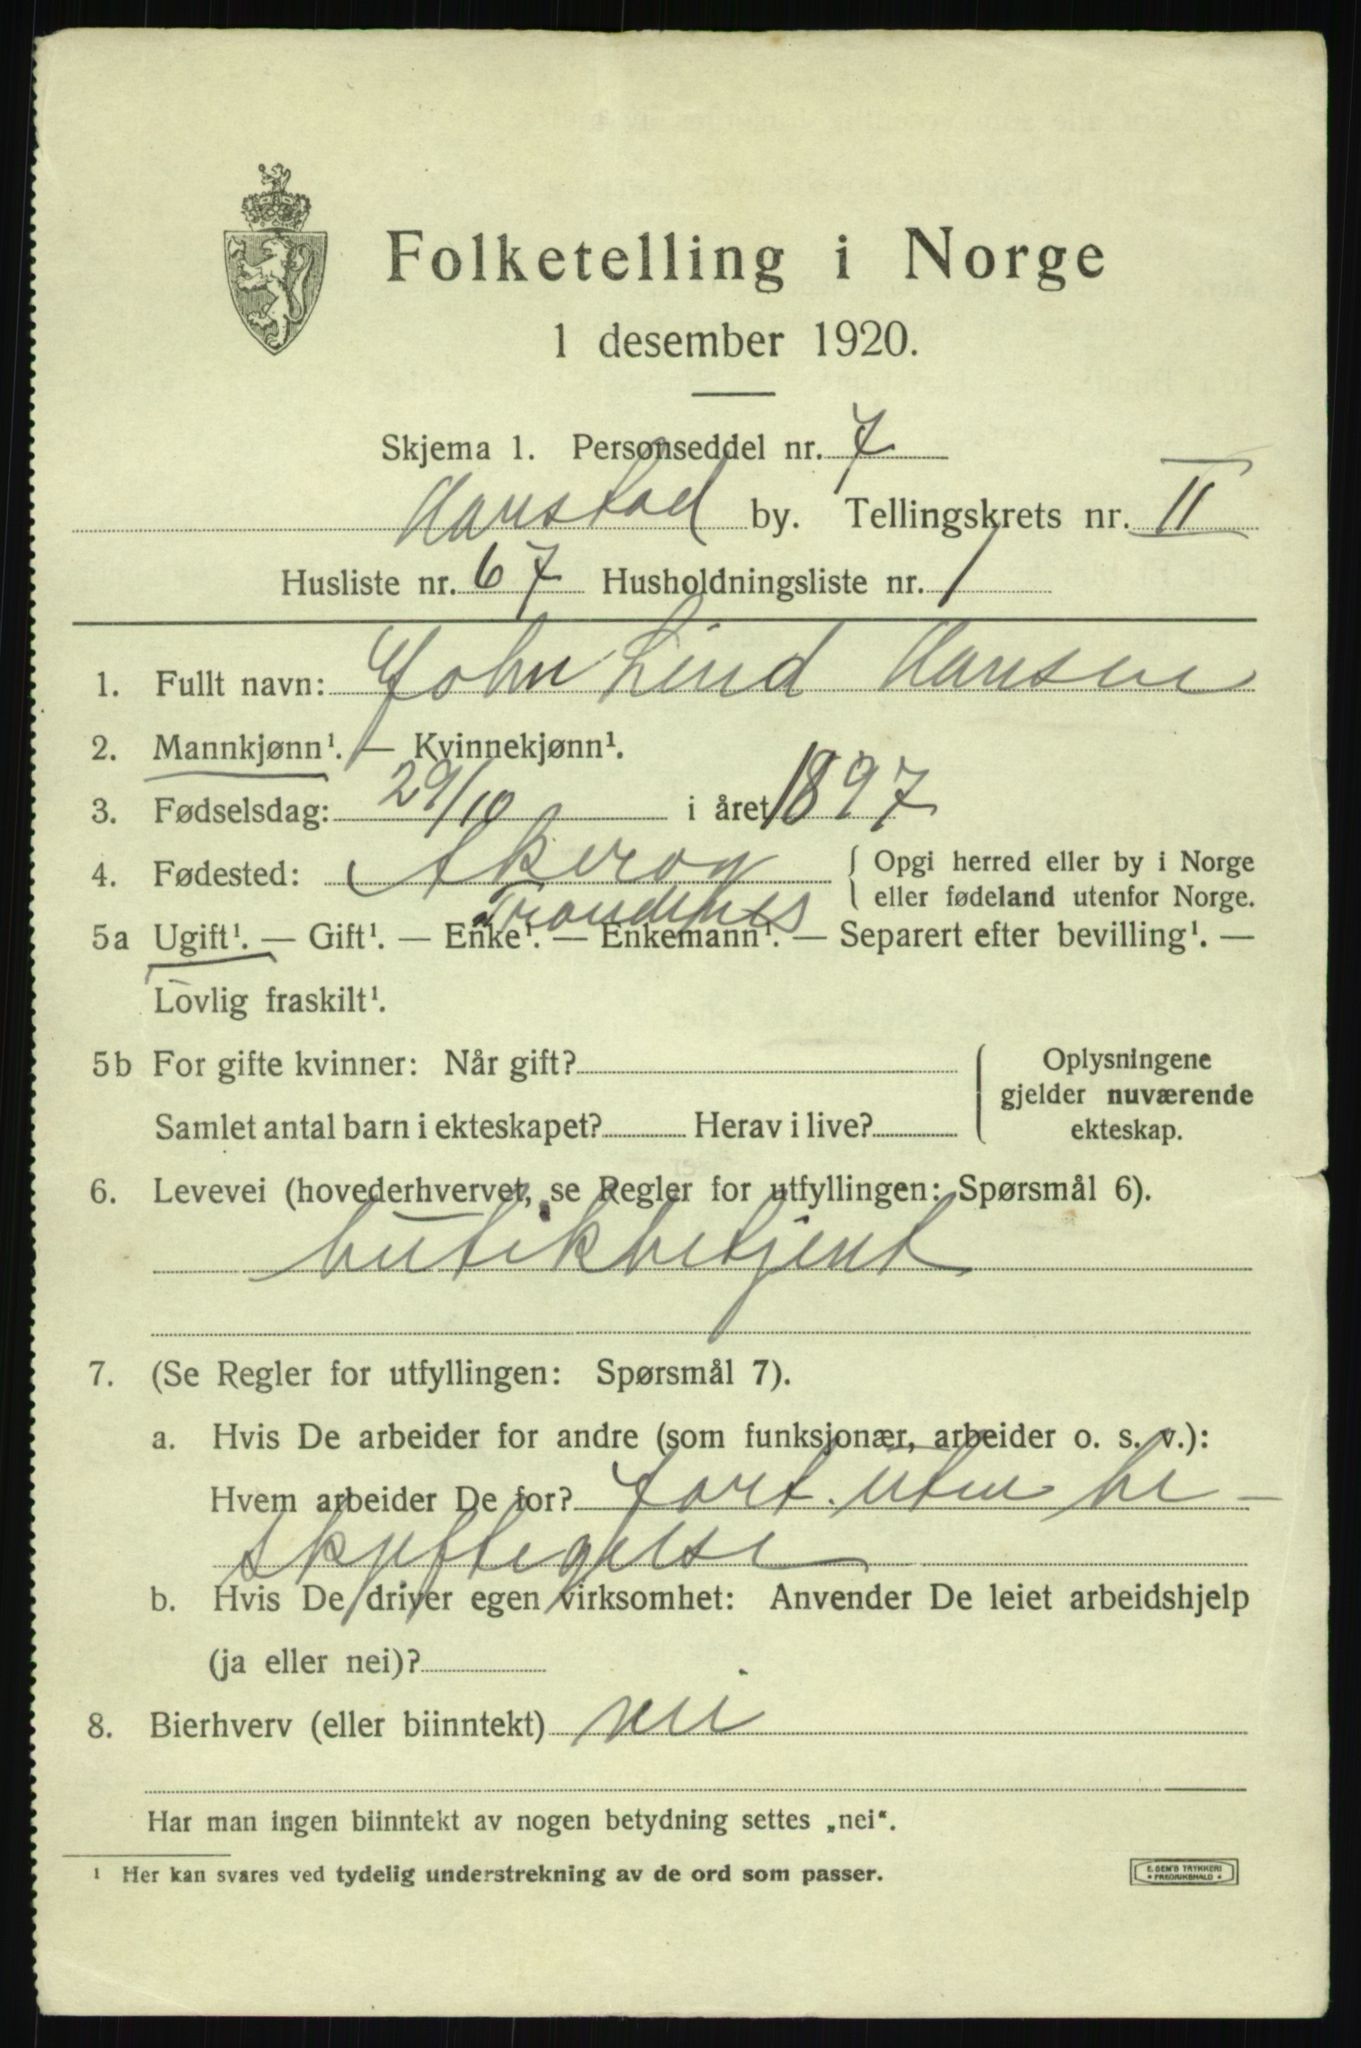 Folketelling i Norge
1 desember 1920.
Skjema 1. Personseddel nr. 7
Harstad by. Tellingskrets nr. II
Husliste nr. 67 Husholdningsliste nr. 1
1. Fullt navn: John Lind Hansen
2. Mannkjønn¹. — Kvinnekjønn¹.
3. Fødselsdag: 29/10 i året 1897
4. Fødested: Akerøy { Opgi herred eller by i Norge
Trondenes { eller fødeland utenfor Norge.
5a Ugift¹. — Gift¹. — Enke¹. — Enkemann¹. — Separert efter bevilling¹. —
Lovlig fraskilt¹.
5b For gifte kvinner: Når gift? { Oplysningene
gjelder nuværende
Samlet antal barn i ekteskapet? Herav i live? ekteskap.
6. Levevei (hovederhvervet, se Regler for utfyllingen: Spørsmål 6).
butikbetjent
7. (Se Regler for utfyllingen: Spørsmål 7).
a. Hvis De arbeider for andre (som funksjonær, arbeider o. s. v.):
Hvem arbeider De for? fort. uten be-
skjeftigelse
b. Hvis De driver egen virksomhet: Anvender De leiet arbeidshjelp
(ja eller nei)?
8. Bierhverv (eller biinntekt) nei
Har man ingen biinntekt av nogen betydning settes „nei“.
¹ Her kan svares ved tydelig understrekning av de ord som passer.
E. SEM'S TRYKKERI
• FREDRIKSHALD •